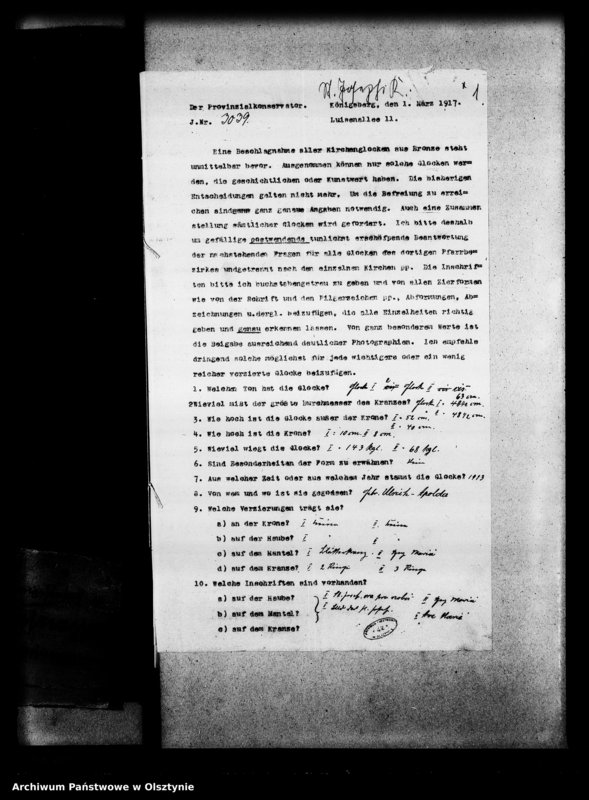 St. Josephi K. 1
Der Provinzialkonservator. Königsberg, den 1. März 1917.
J.Nr. 3039. Luisenallee 11.
Eine Beschlagnahme aller Kirchenglocken aus Bronze steht
unmittelbar bevor. Ausgenommen können nur solche Glocken wer-
den, die geschichtlichen oder Kunstwert haben. Die bisherigen
Entscheidungen gelten nicht mehr. Um die Befreiung zu errei-
chen sind ganz genaue Angaben notwendig. Auch eine Zusammen
stellung sämtlicher Glocken wird gefordert. Ich bitte deshalb
um gefällige postwendende tunlichst erschöpfende Beantwortung
der nachstehenden Fragen für alle Glocken des dortigen Pfarrbe-
zirkes und getrennt nach den einzelnen Kirchen pp. Die Inschrif-
ten bitte ich buchstabengetreu zu geben und von allen Zierformen
wie von der Schrift und den Pilgerzeichen pp., Abformungen, Ab-
zeichnungen u.dergl. beizufügen, die alle Einzelheiten richtig
geben und genau erkennen lassen. Von ganz besonderem Werte ist
die Beigabe ausreichend deutlicher Photographien. Ich empfehle
dringend solche möglichst für jede wichtigere oder ein wenig
reicher verzierte Glocke beizufügen.
1. Welchen Ton hat die Glocke? Glock I Glock II
2 Wieviel mißt der größte Durchmesser des Kranzes? Glock I 63 cm.
3. Wie hoch ist die Glocke außer der Krone? I = 52 cm. 48 ½ cm.
4. Wie hoch ist die Krone? I = 10 cm. II 8 cm. II = 40 cm.
5. Wieviel wiegt die Glocke? I = 143 Kgl. II = 68 Kgl.
6. Sind Besonderheiten der Form zu erwähnen? Kein
7. Aus welcher Zeit oder aus welchem Jahr stammt die Glocke? 1913
8. Von wem und wo ist sie gegossen? Gbr. Ulrich - Apolda
9. Welche Verzierungen trägt sie?
a) an der Krone? I keine II. keine
b) auf der Haube? I " II "
c) auf dem Mantel? I Blätterkranz. II Mariä
d) auf dem Kranze? I 2 Ringe II 3 Ringe
10. Welche Inschriften sind vorhanden?
a) auf der Haube? I St. Josef, ora pro nobis II Mariä
b) auf dem Mantel? I Bild des hl. Josef. II Ave Maria
c) auf dem Kranze?
Archiwum Państwowe w Olsztynie